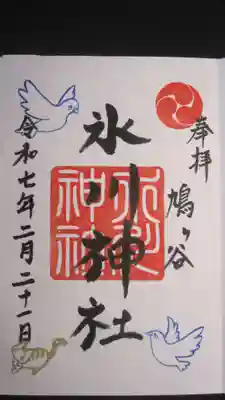 奉拝
鳩ヶ谷
氷川神社
氷川
神社
令和七年二月二十一日